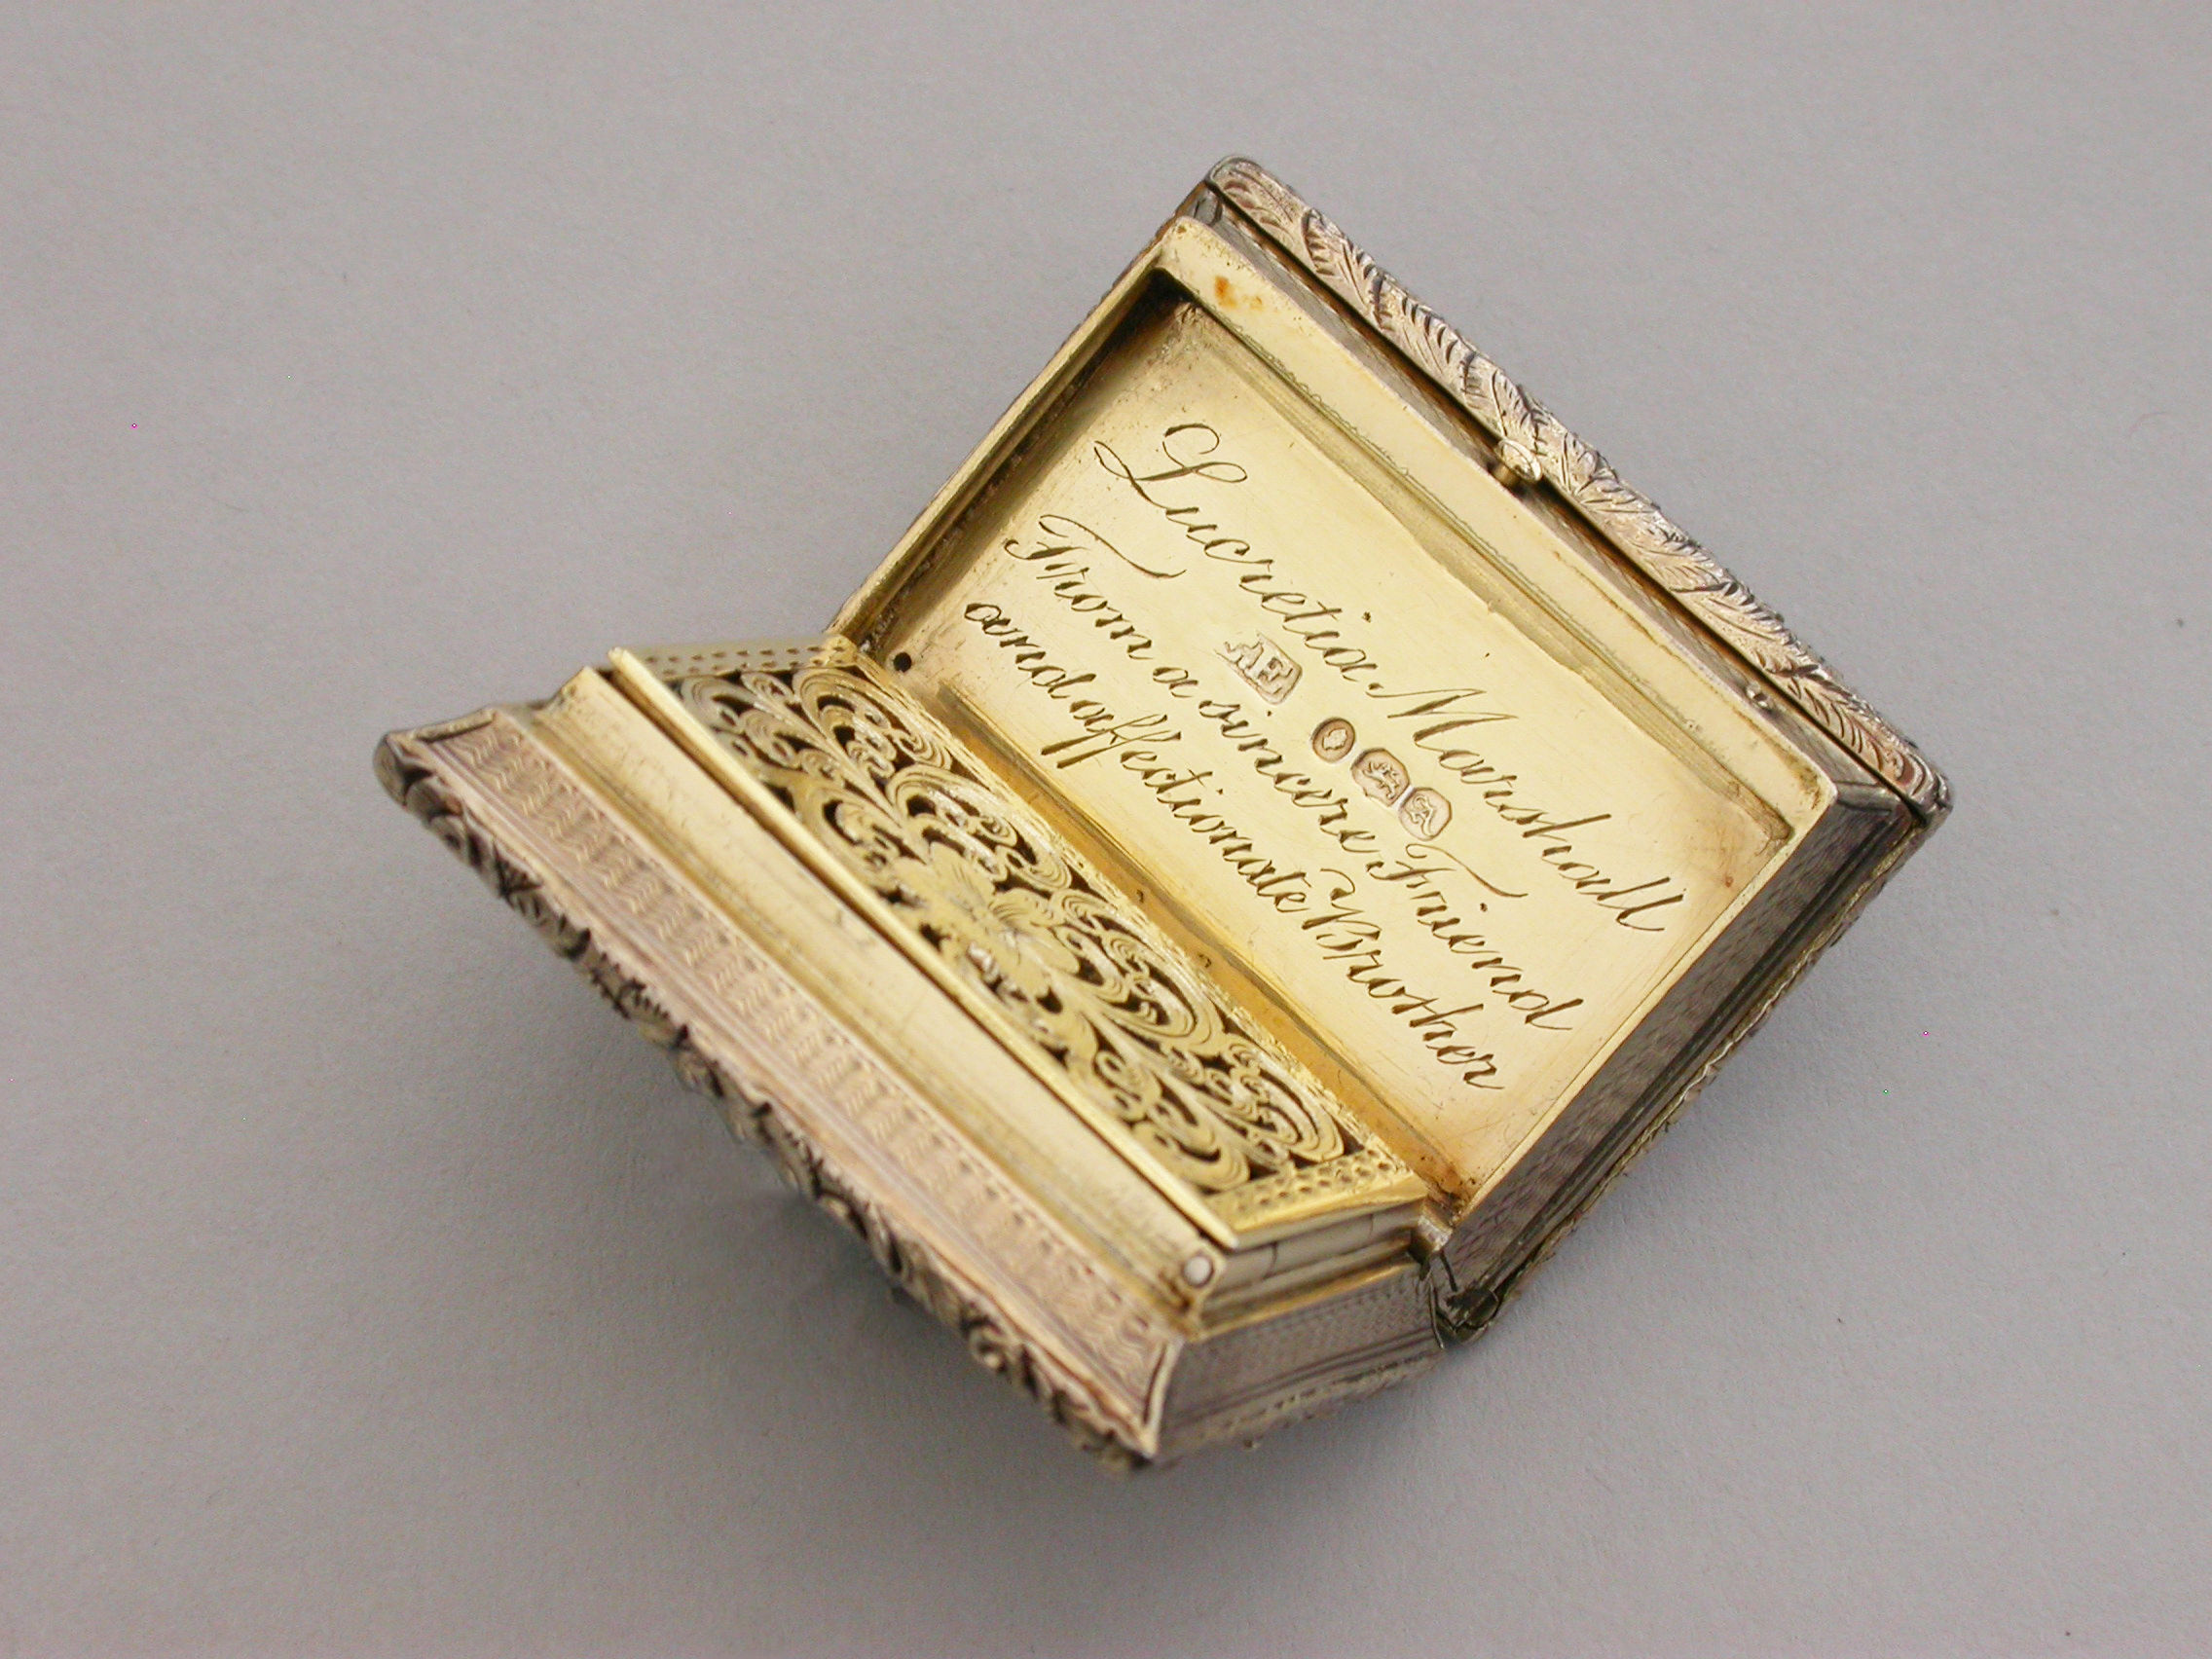 Lucretia Marshall
AE A
From a sincere Friend
and affectionate Brother